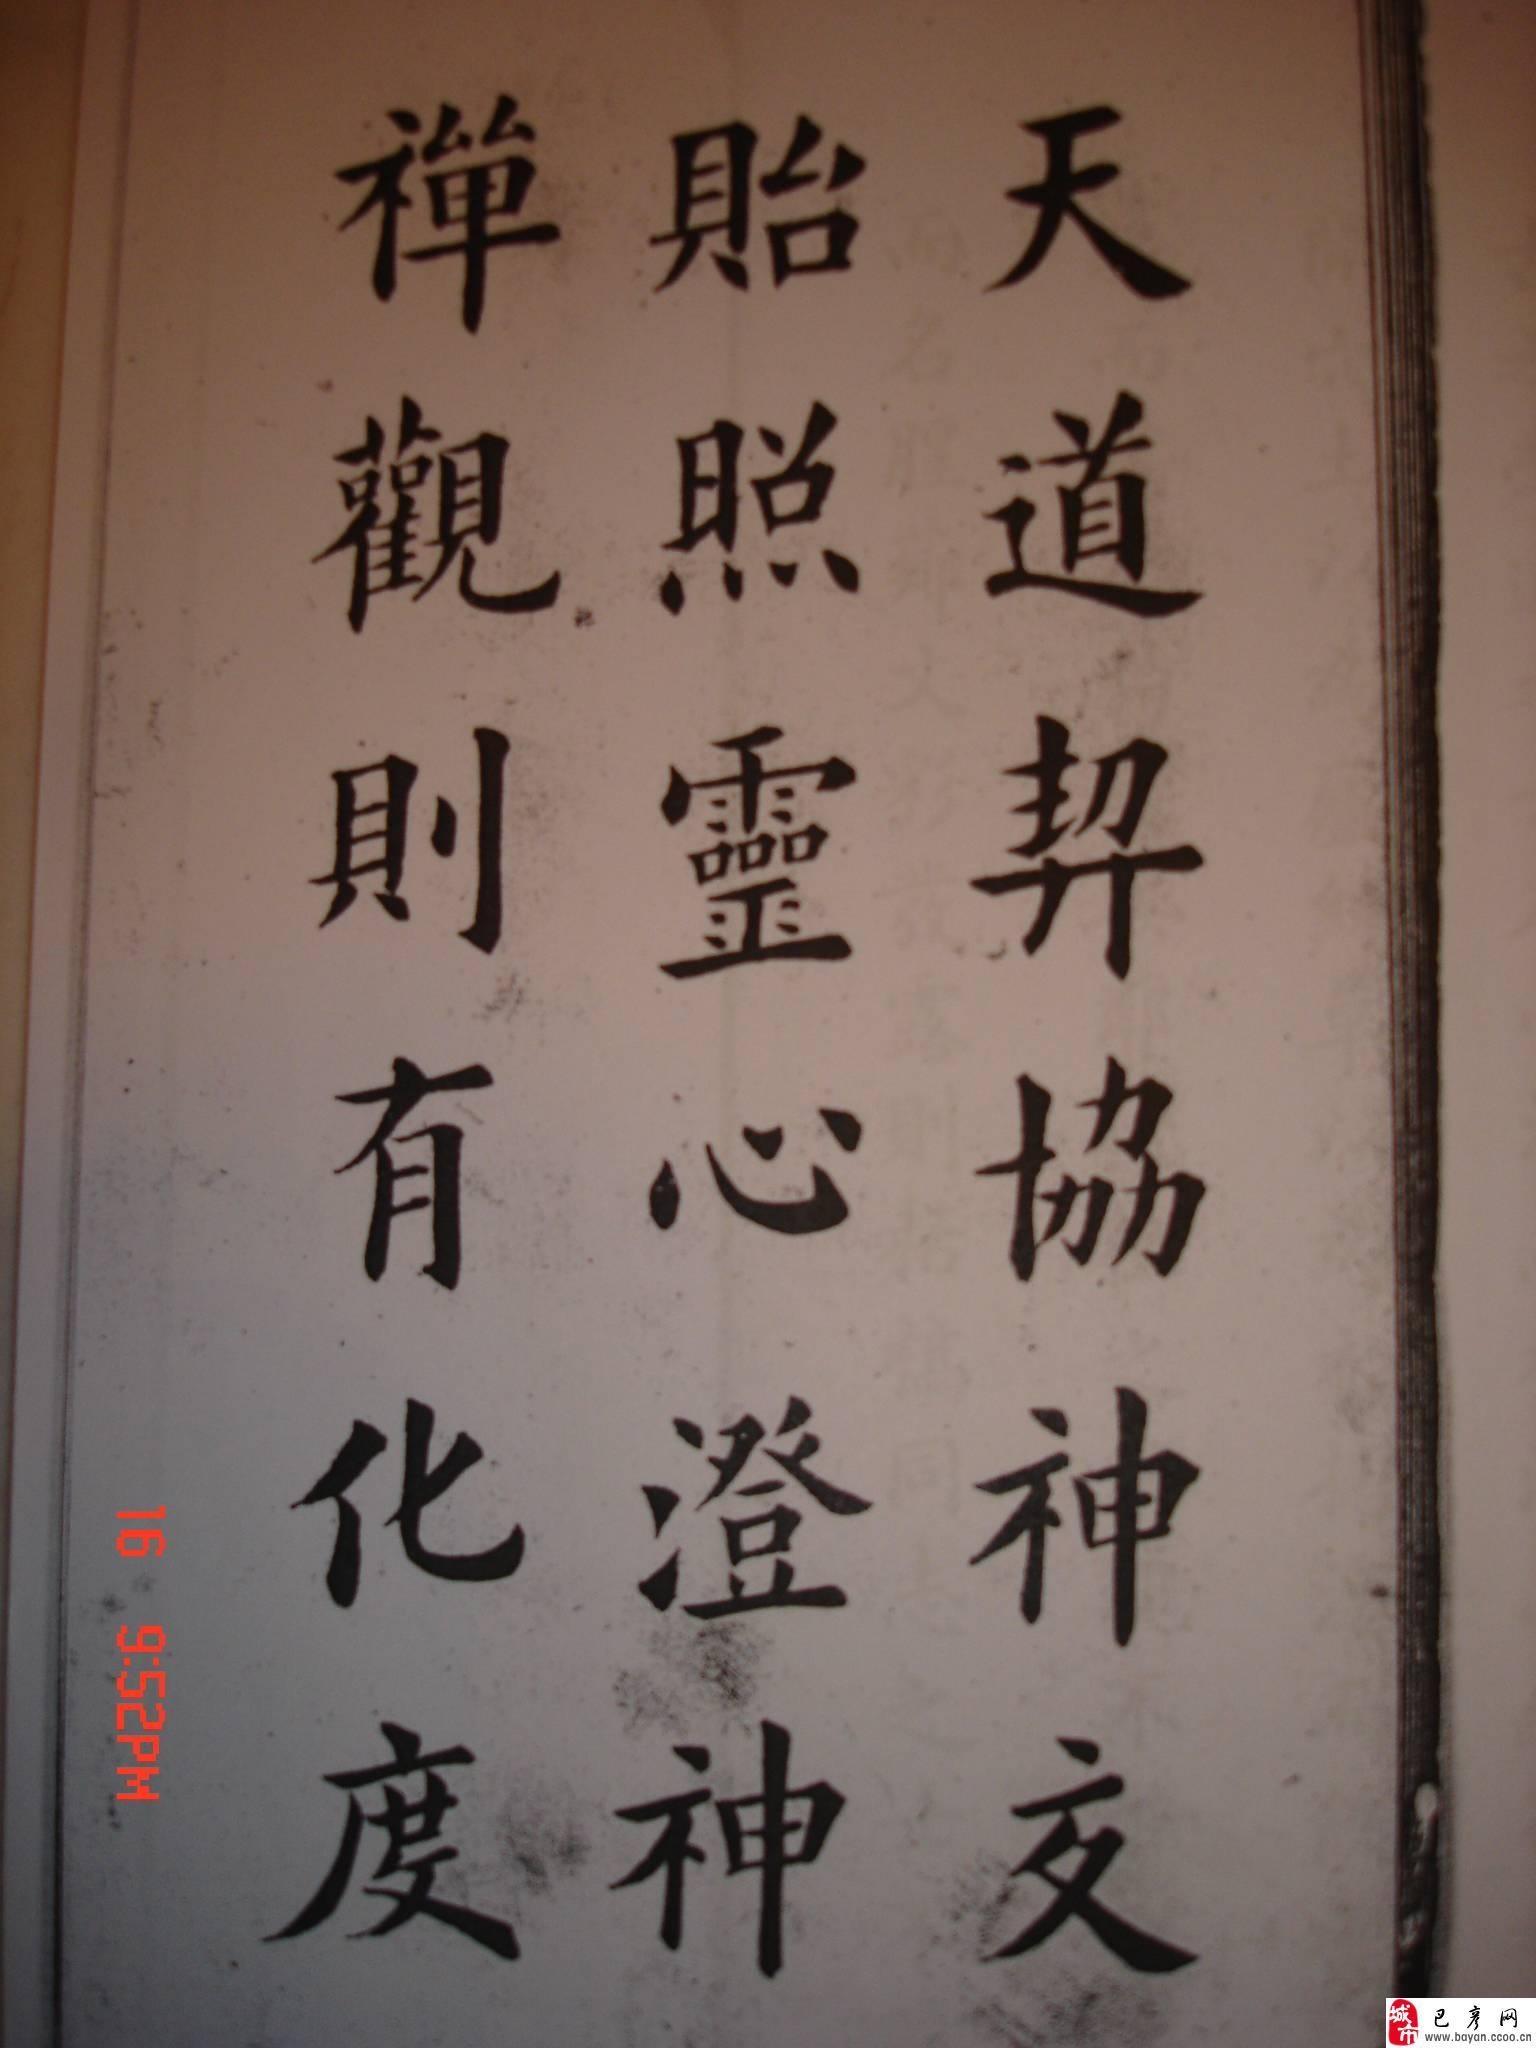 天道契協神交
貽照靈心澄神
禪觀則有化度
16 9:52PM
城市
巴彦网
www.bayan.ccoo.cn